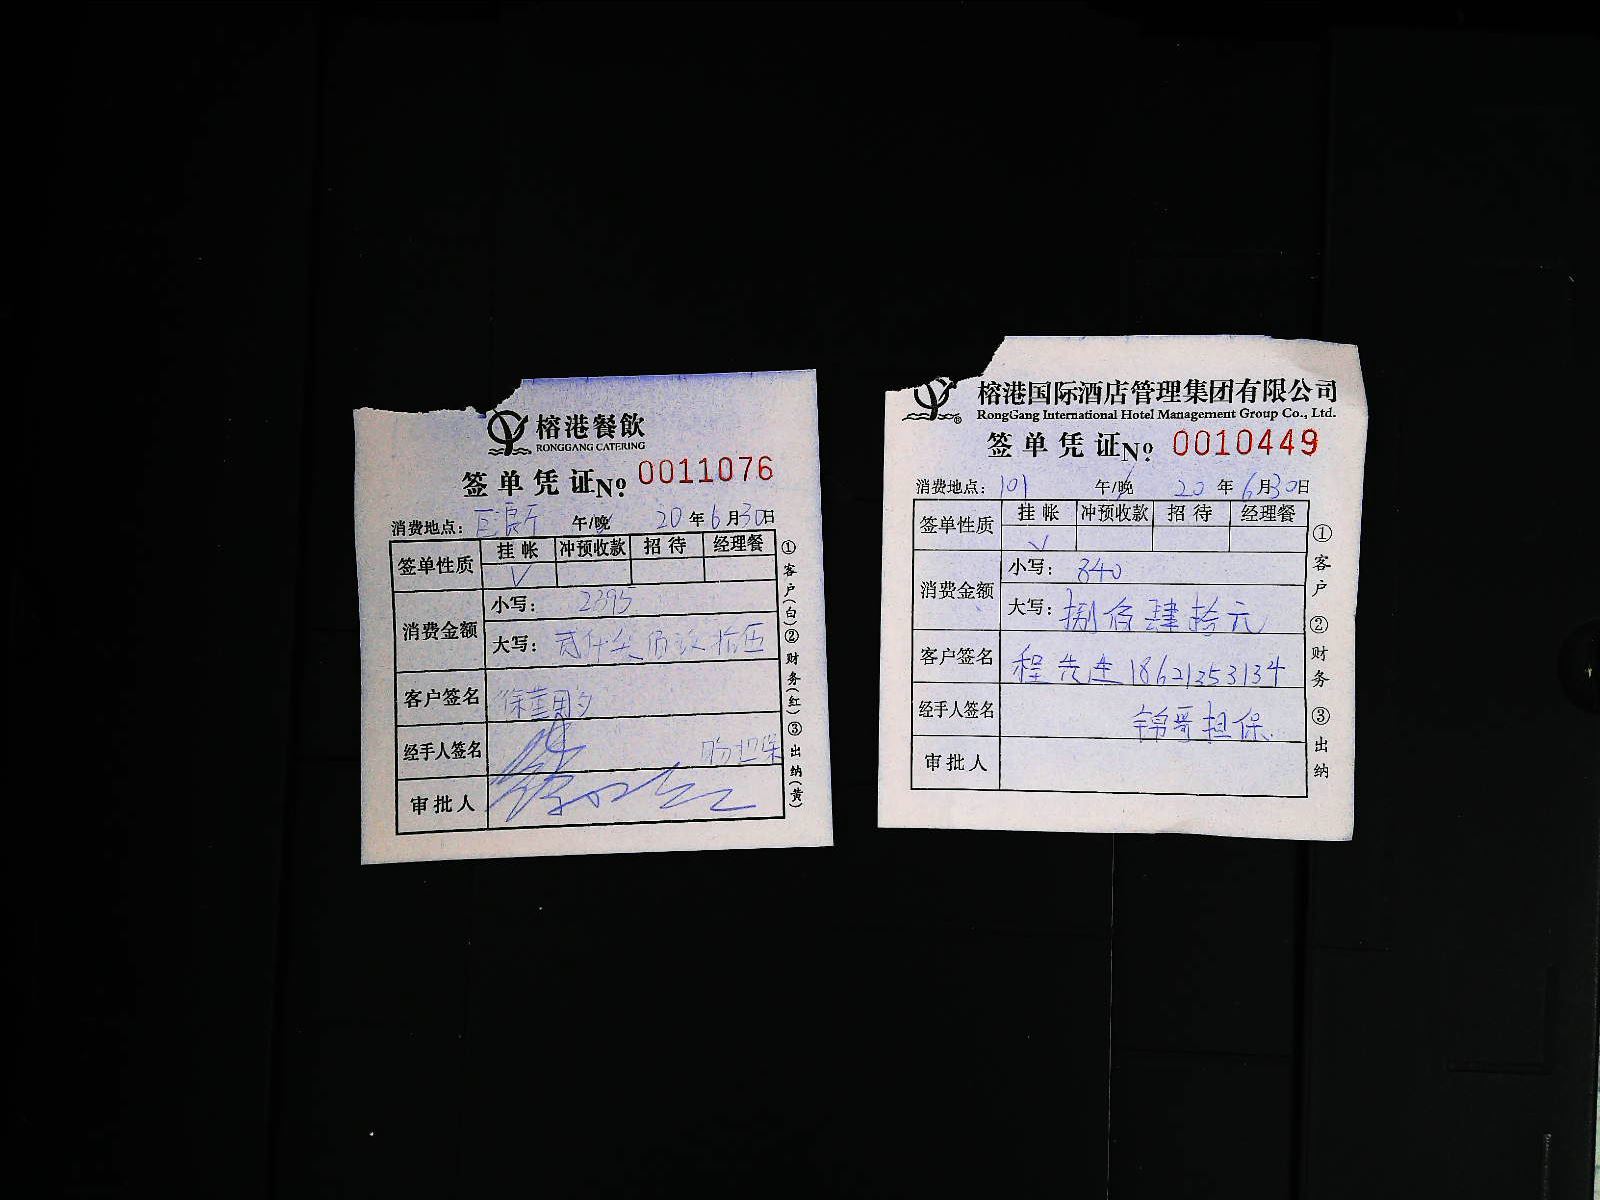 榕港餐飲
RONGGANG CATERING
签单凭证 Nº 0011076
消费地点： 午/晚 20年6月30日
签单性质 挂帐 冲预收款 招待 经理餐
√
消费金额 小写：2395
大写：贰仟叁佰玖拾伍
客户签名
经手人签名 担保
审批人
①客户(白)②财务(红)③出纳(黄)
榕港国际酒店管理集团有限公司
RongGang International Hotel Management Group Co., Ltd.
签单凭证 Nº 0010449
消费地点：101 午/晚 20年6月30日
签单性质 挂帐 冲预收款 招待 经理餐
√
消费金额 小写：840
大写：捌佰肆拾元
客户签名 程先生18621353134
经手人签名 锦哥担保
审批人
①客户 ②财务 ③出纳